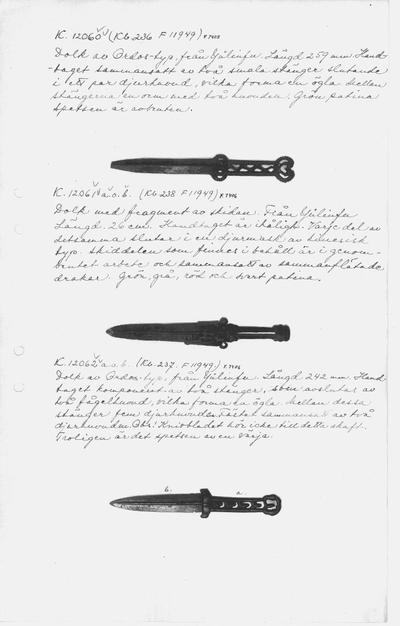 K. 12060 (Kb 236 F 11949) K 7405
Dolk av Ordos-typ, från Yülinfu. Längd 259 mm. Hand-
taget sammansatt av två smala stänger slutande
i ett par djurhuvud, vilka forma en ögla. Mellan
stängerna en orm med två huvuden. Grön patina
Spetsen är avbruten.
K. 12061 a.o.b. (Kb 238 F 11949) K 7406
Dolk med fragment av skidan. Från Yülinfu
Längd 26 cm. Handtaget är ihåligt. Varje del av
detsamma slutar i en djurmask av kinesisk
typ. Skiddelen som finnes i behåll är i genom-
brutet arbete och sammansatt av sammanflätade
drakar. Grön, grå, röd och svart patina.
K. 12062 a.o.b. (Kb. 237. F 11949)
Dolk av Ordos-typ, från Yülinfu. Längd 242 mm. Hand
taget komponerat av två stänger, som avslutas av
två fågelhuvud, vilka forma en ögla. Mellan dessa
stänger fem djurhuvuden. Fästet sammansatt av två
djurhuvuden. Obs! Knivbladet hör icke till detta skaft.
Troligen är det spetsen av en värja.
b. a.